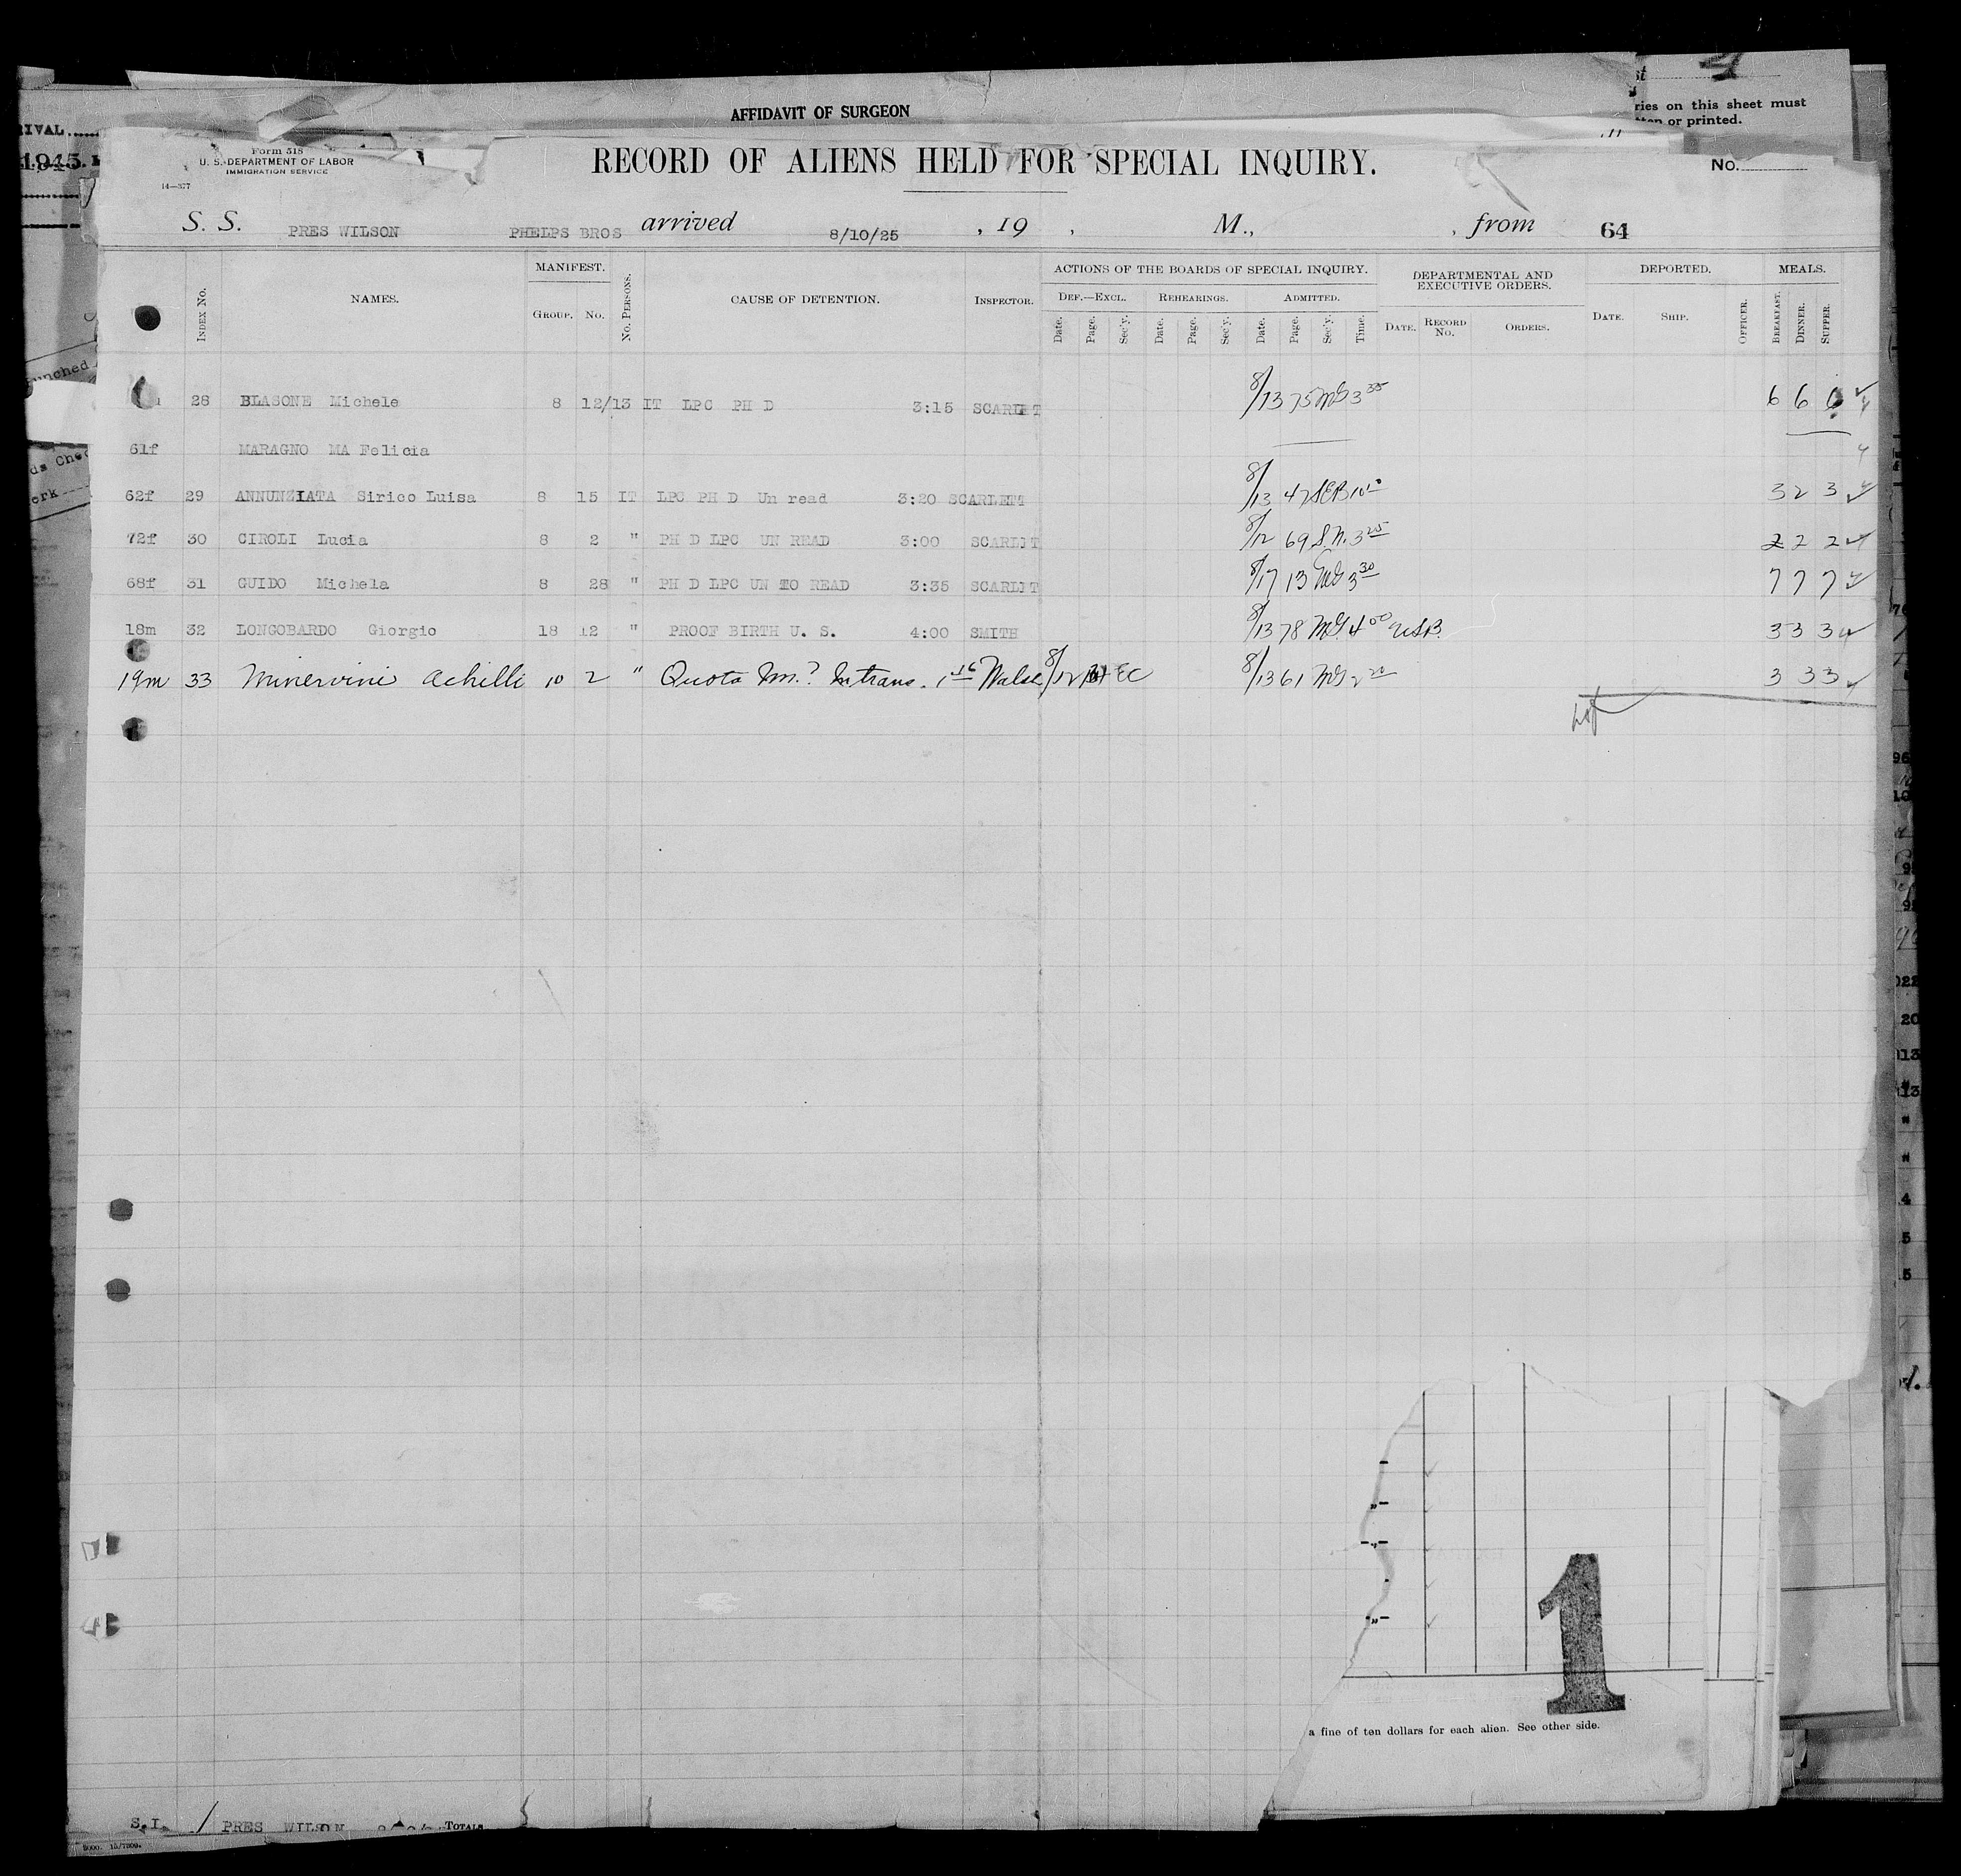 AFFIDAVIT OF SURGEON
RIVAL
1945
ries on this sheet must
or printed.
Form 518
U. S. DEPARTMENT OF LABOR
IMMIGRATION SERVICE
14—377
RECORD OF ALIENS HELD FOR SPECIAL INQUIRY.
No.
S. S. PRES WILSON PHELPS BROS arrived 8/10/25 , 19 , M., , from 64
INDEX No. NAMES. MANIFEST. GROUP. No. No. PERSONS. CAUSE OF DETENTION. INSPECTOR. ACTIONS OF THE BOARDS OF SPECIAL INQUIRY. DEF.—EXCL. REHEARINGS. ADMITTED. DEPARTMENTAL AND EXECUTIVE ORDERS. DEPORTED. MEALS.
Date. Page. Sec'y. Date. Page. Sec'y. Date. Page. Sec'y. Time. DATE. RECORD No. ORDERS. DATE. SHIP. OFFICER. BREAKFAST. DINNER. SUPPER.
28 BLASONE Michele 8 12/13 IT LPC PH D 3:15 SCARLET 8/13 75 MG 3 35 6 6 6
61f MARAGNO MA Felicia
62f 29 ANNUNZIATA Sirico Luisa 8 15 IT LPC PH D Un read 3:20 SCARLETT 8/13 47 SEB 10 3 2 3
72f 30 CIROLI Lucia 8 2 " PH D LPC UN READ 3:00 SCARLET 8/12 69 S.N. 3 25 2 2 2
68f 31 GUIDO Michela 8 28 " PH D LPC UN TO READ 3:35 SCARLET 8/17 13 MG 3 30 7 7 7
18m 32 LONGOBARDO Giorgio 18 12 " PROOF BIRTH U. S. 4:00 SMITH 8/13 78 MG 4 00 USB. 3 3 3
19m 33 Minervini Achille 10 2 " Quota Im.? In trans. 1 16 Walsh 8/12 EC 8/13 61 MG 2 20 3 3 3
1
a fine of ten dollars for each alien. See other side.
S.I. / PRES WILSON TOTALS